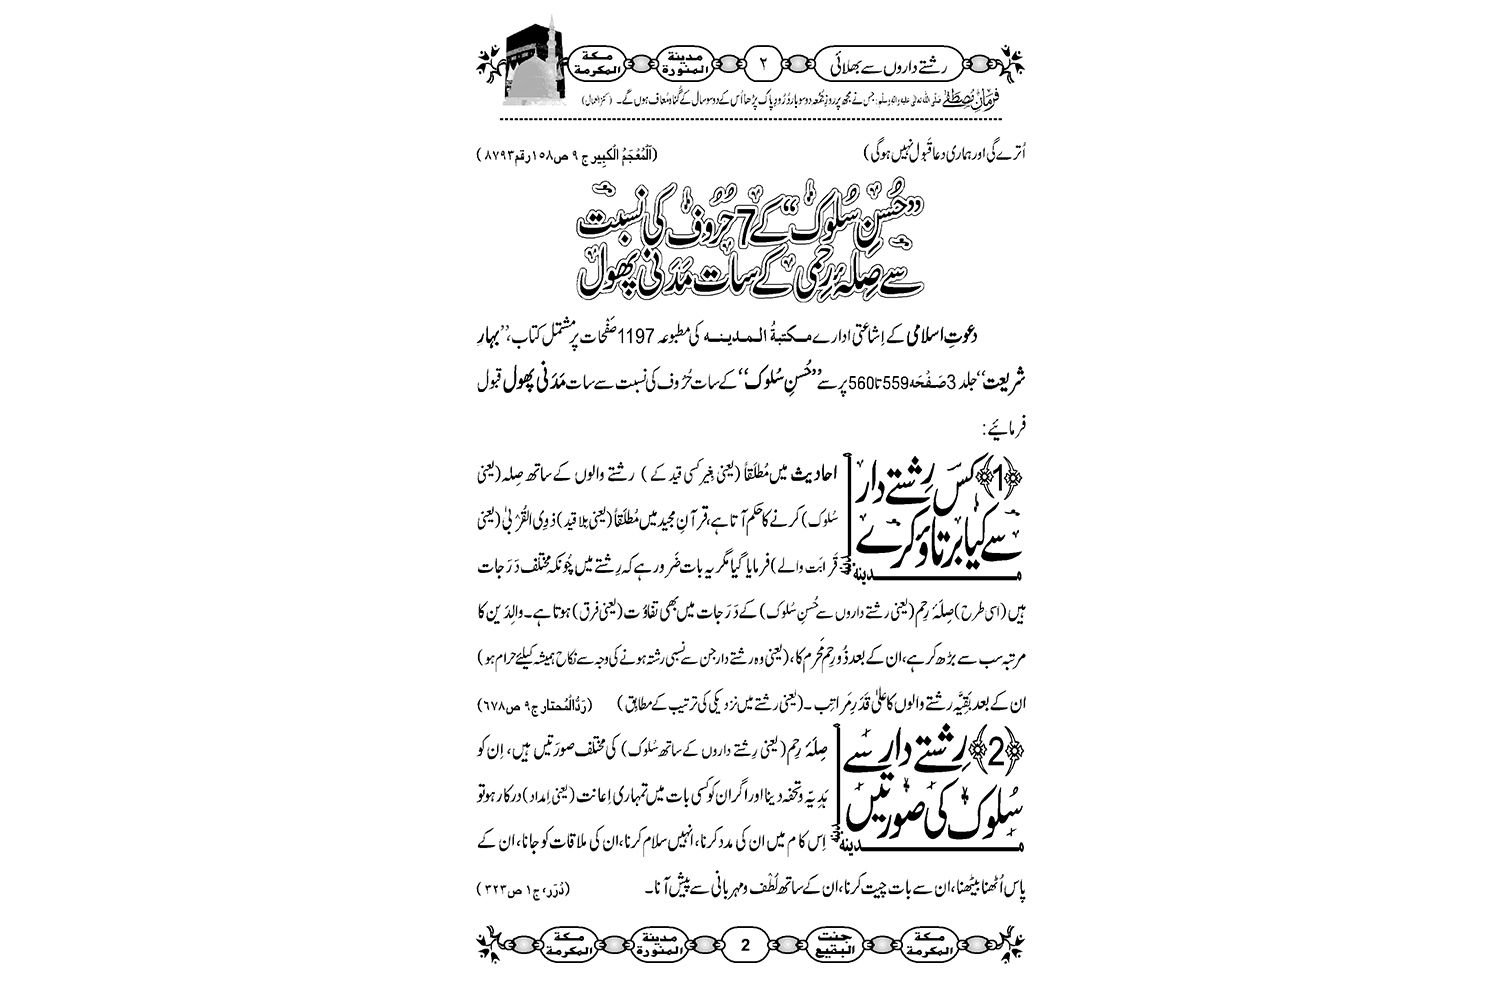 رشتے داروں سے بھلائی ۲ مدینة المنورة مكة المكرمة
فرمانِ مصطَفٰے صلَّی اللہ تعالٰی علیہ واٰلہٖ وسلَّم: جس نے مجھ پر روزِ جُمُعہ دو سو بار دُرُود پاک پڑھا اُس کے دو سو سال کے گناہ مُعاف ہوں گے۔ (کنزالعمال)
اُترے گی اور ہماری دعا قَبول نہیں ہوگی) (اَلْمُعْجَمُ الْكَبِير ج ۹ ص ۱۵۸ رقم ۸۷۹۳)
”حُسنِ سُلوک“ کے 7 حُرُوف کی نسبت
سے صِلۂ رِحمی کے سات مَدَنی پھول
دعوتِ اسلامی کے اِشاعتی ادارے مکتبةُ المدینہ کی مطبوعہ 1197 صَفحات پر مشتمل کتاب، ”بہارِ
شریعت“ جلد 3 صَفْحَہ 559 تا 560 پر سے ”حُسنِ سُلوک“ کے سات حُرُوف کی نسبت سے سات مَدَنی پھول قبول
فرمائیے:
﴿1﴾ کس رِشتے دار
سے کیا برتاؤ کرے
احادیث میں مُطلَقاً (یعنی بغیر کسی قید کے) رشتے والوں کے ساتھ صِلہ (یعنی
سُلوک) کرنے کا حکم آتا ہے، قرآنِ مجید میں مُطلَقاً (یعنی بلا قید) ذوِی القُربٰی (یعنی
قَرابَت والے) فرمایا گیا مگر یہ بات ضَرور ہے کہ رِشتے میں چُونکہ مختلف دَرَجات
ہیں (اسی طرح) صِلَۂ رِحم (یعنی رشتے داروں سے حُسنِ سُلوک) کے دَرَجات میں بھی تفاوُت (یعنی فرق) ہوتا ہے۔ والِدَین کا
مرتبہ سب سے بڑھ کر ہے، ان کے بعد ذُو رِحم مَحرم کا، (یعنی وہ رشتے دار جن سے نسبی رشتہ ہونے کی وجہ سے نکاح ہمیشہ کیلئے حرام ہو)
ان کے بعد بَقِیَّہ رشتے والوں کا علٰی قَدَرِ مَراتِب۔ (یعنی رشتے میں نزدیکی کی ترتیب کے مطابِق) (رَدُّالْمُحتار ج ۹ ص ۶۷۸)
﴿2﴾ رِشتے دار سے
سُلوک کی صورَتیں
صِلَۂ رِحم (یعنی رِشتے داروں کے ساتھ سُلوک) کی مختلف صورَتیں ہیں، اِن کو
ہَدِیّہ و تحفہ دینا اور اگر ان کو کسی بات میں تمہاری اِعانت (یعنی اِمداد) درکار ہو تو
اِس کام میں ان کی مدد کرنا، انہیں سلام کرنا، ان کی ملاقات کو جانا، ان کے
پاس اُٹھنا بیٹھنا، ان سے بات چیت کرنا، ان کے ساتھ لُطْف و مہربانی سے پیش آنا۔ (دُرَر، ج ۱ ص ۳۲۳)
مكة المكرمة جنت البقيع 2 مدينة المنورة مكة المكرمة